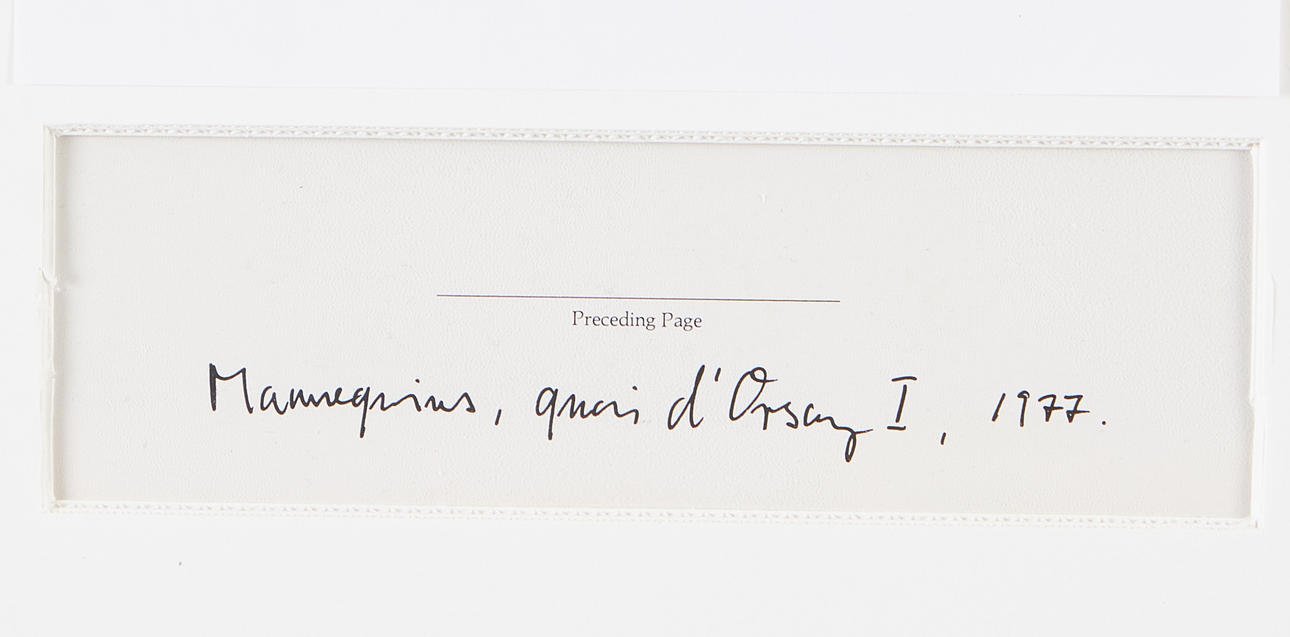 Preceding Page
Mannequins, quai d'Orsay I, 1977.